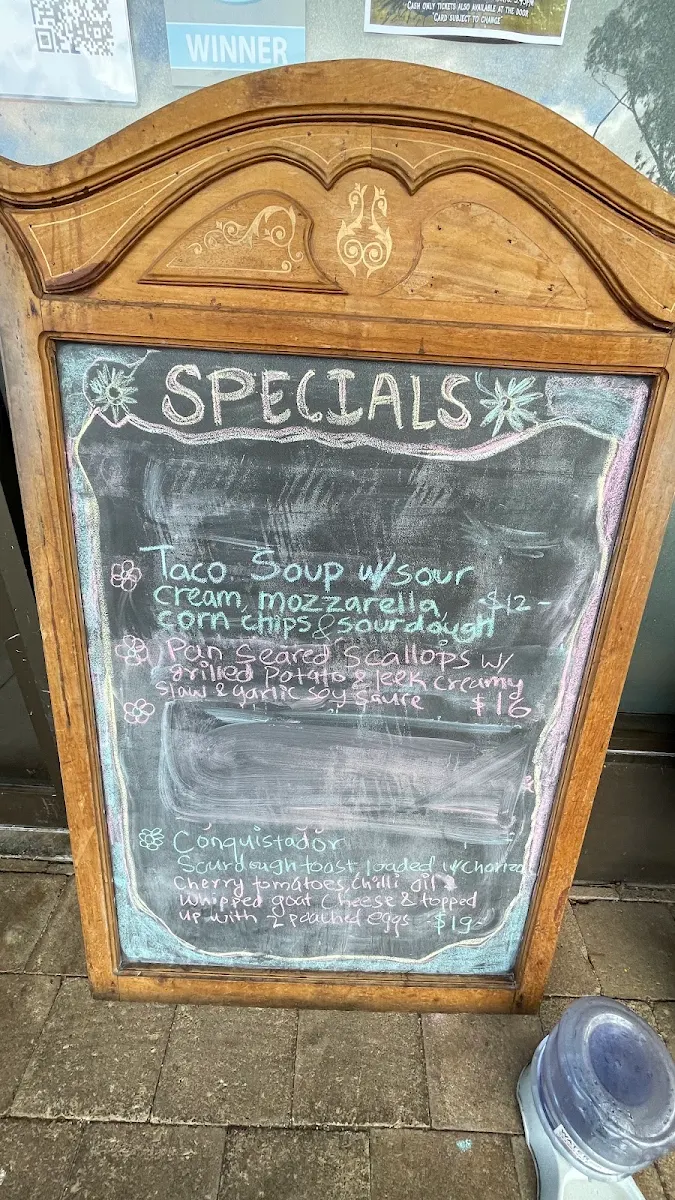 CASH ONLY TICKETS ALSO AVAILABLE AT THE DOOR
CARD SUBJECT TO CHANGE
WINNER
SPECIALS
Taco Soup w/sour
cream, mozzarella, $12-
corn chips & sourdough
Pan Seared Scallops w/
grilled Potato & leek creamy
slaw & garlic soy sauce $16
Conquistador
Sourdough toast loaded w/Chorizo
Cherry tomatoes, Chilli oil
Whipped goat Cheese & topped
up with 2 poached eggs $19-